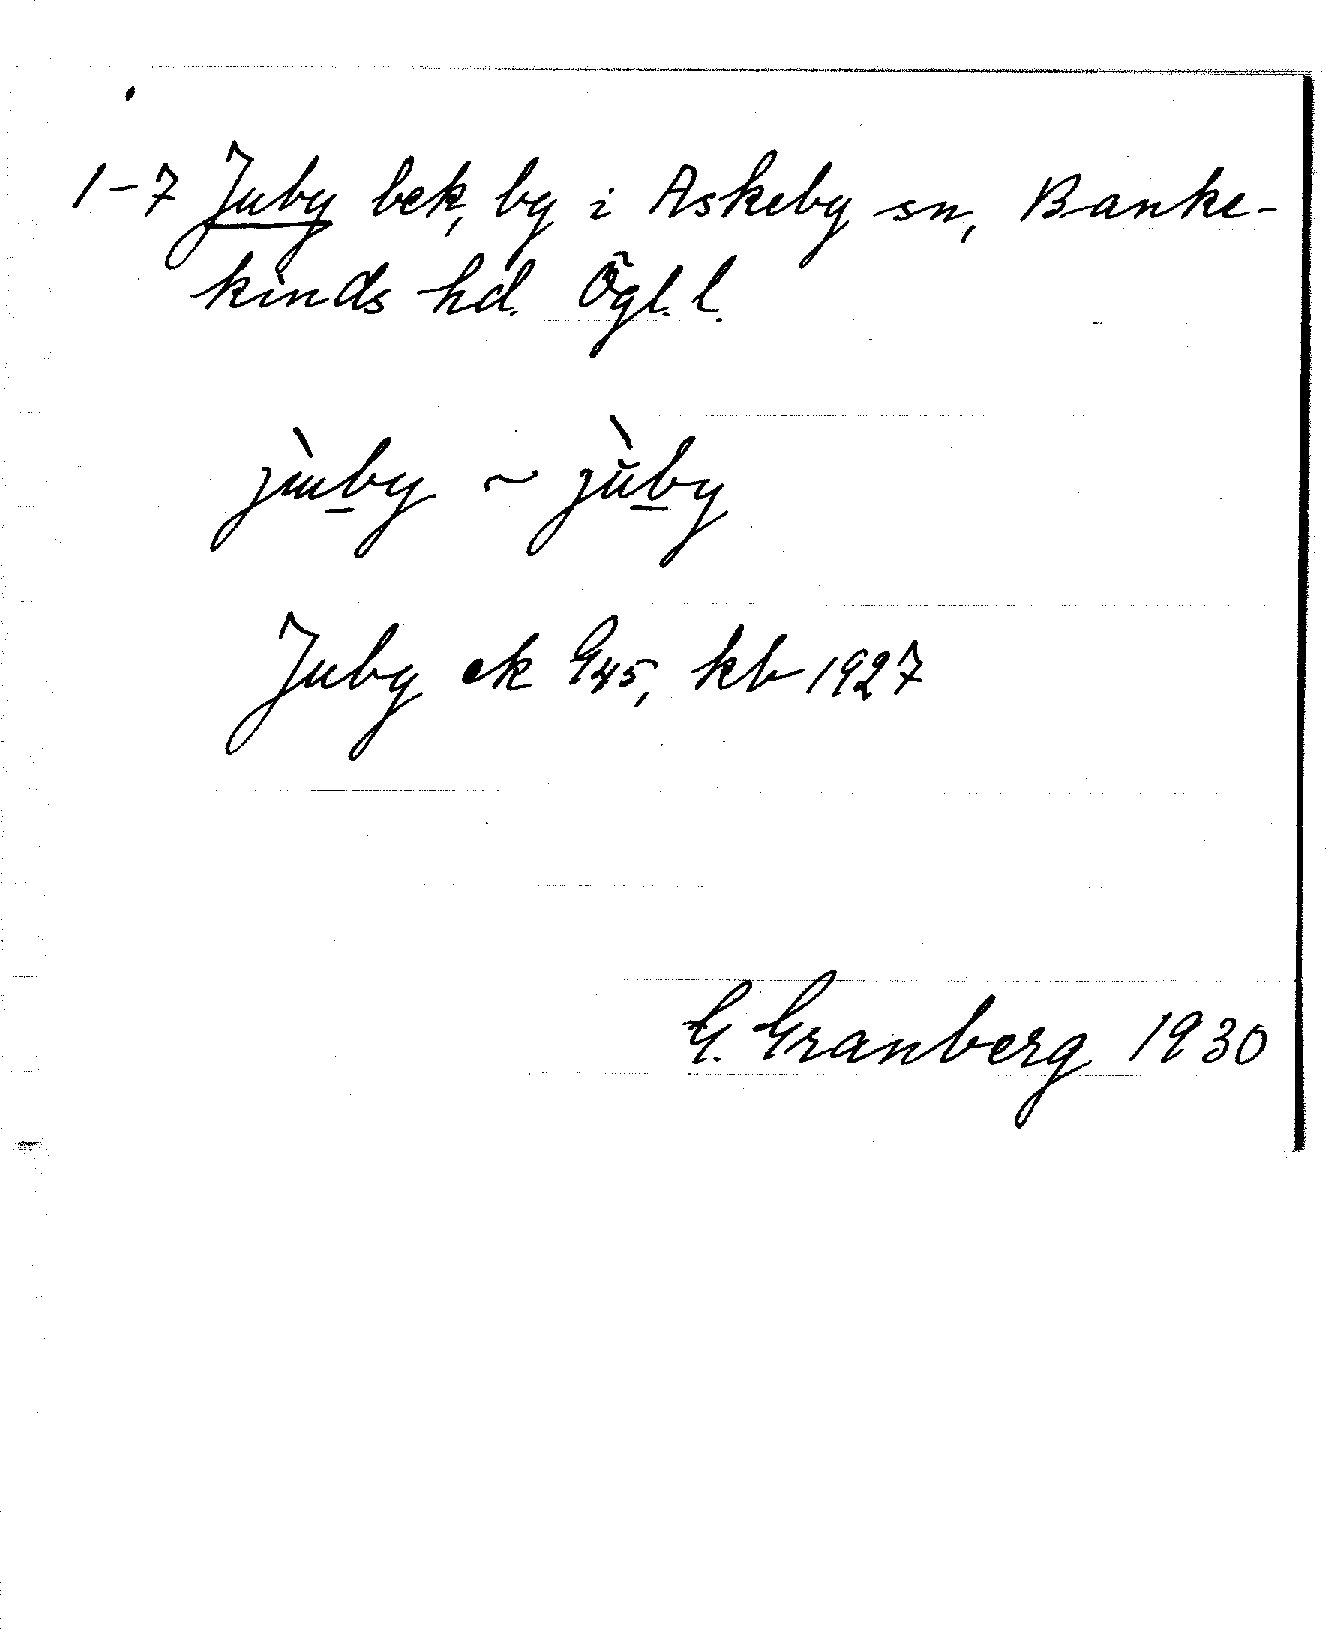 1-7 Juby bek, by i Askeby sn, Banke-
kinds hd. Ögl. l.
jùby ~ jùby
Juby ek G45, kb 1927
G. Granberg 1930